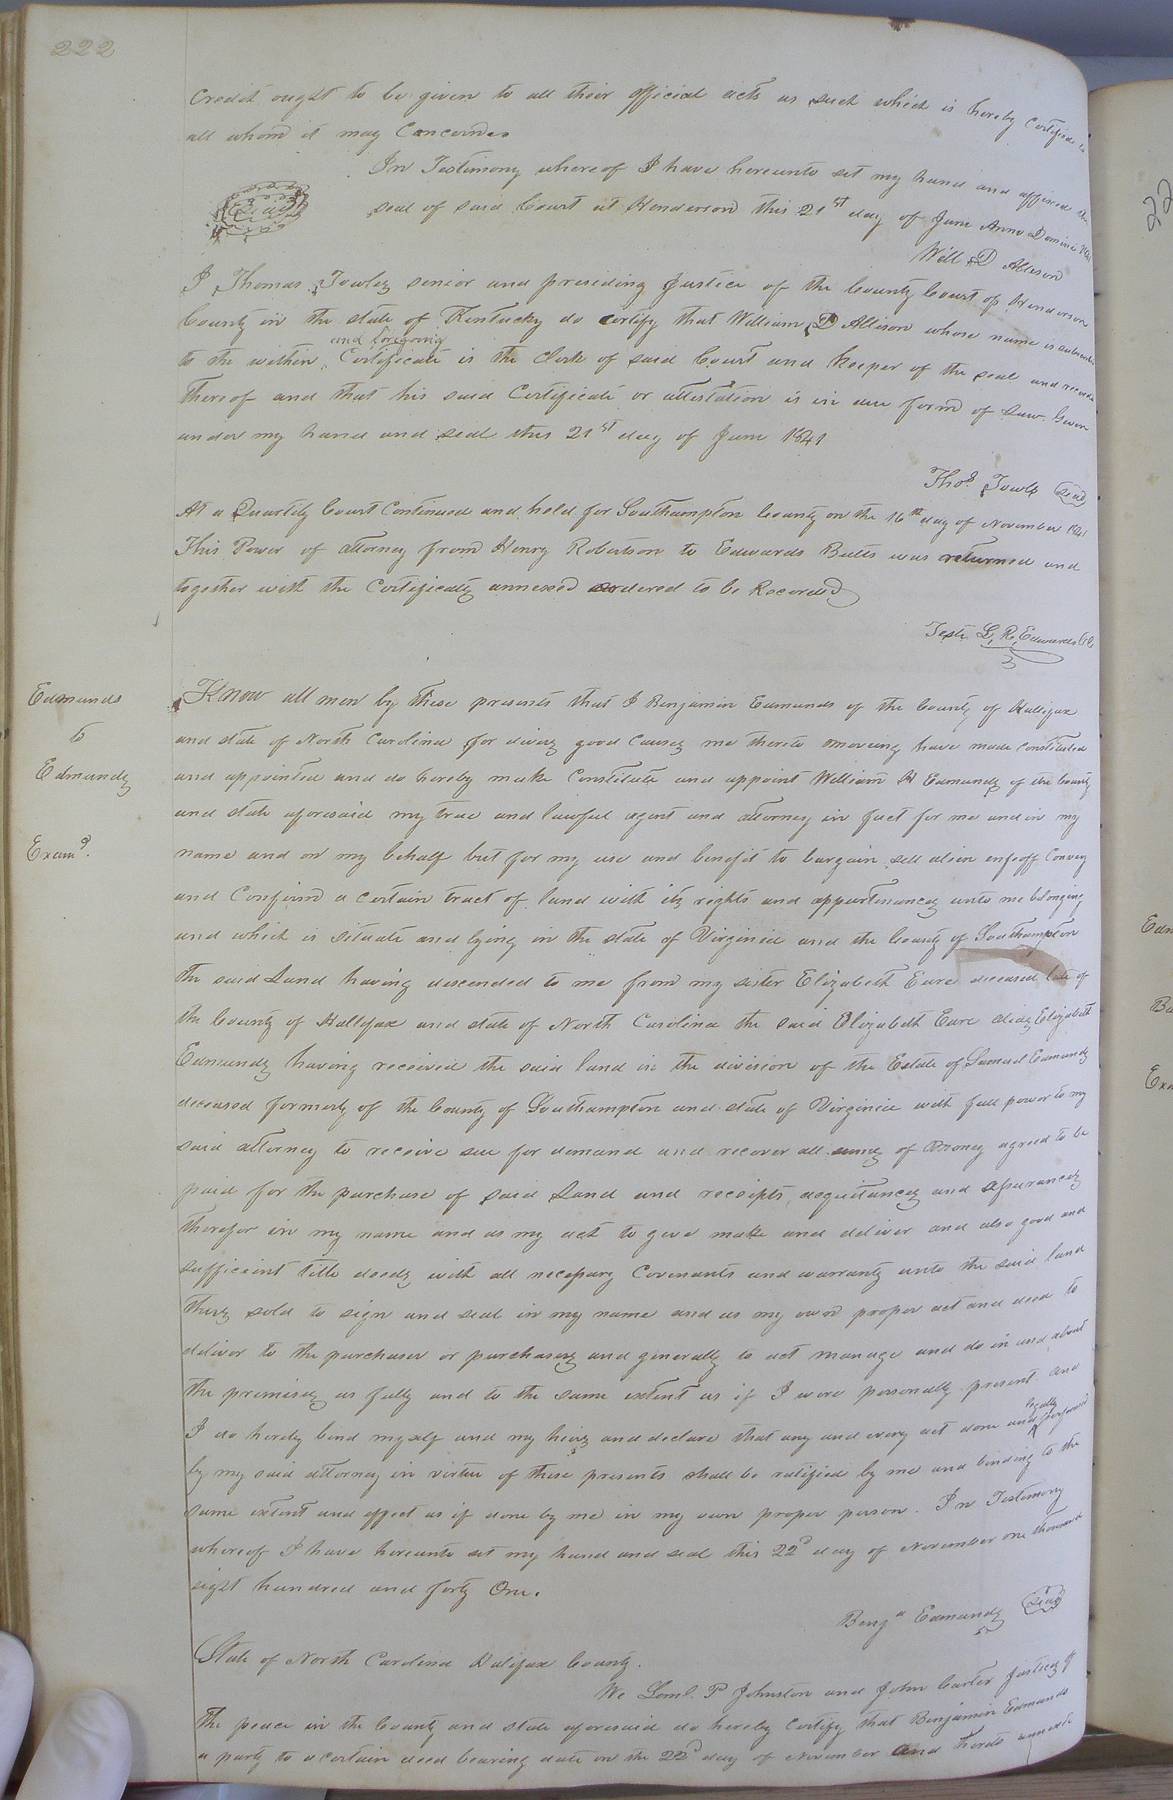 222
Credit ought to be given to all their official acts as such which is hereby Certified to
all whom it may Concern
In Testimony whereof I have hereunto set my hand and affixed the
Seal
seal of said Court at Henderson this 21st day of June Anno Domini
Will D Allison
I Thomas Towles senior and presiding Justice of the County Court of Henderson
County in the state of Kentucky do certify that William D Allison whose name is
and foregoing
to the within Certificate is the Clerk of said Court and keeper of the seal and records
thereof and that his said Certificate or attestation is in due form of Law. Given
under my hand and seal this 21st day of June 1841
Thos. Towles Seal
At a Quarterly Court Continued and held for Southampton County on the 16th day of November 1841
This Power of attorney from Henry Robertson to Edwards Butts was returned and
together with the Certificates annexed ordered to be Recorded
Teste L. R. Edwards Clk
Edmunds
to
Edmunds
Examd.
Know all men by these presents that I Benjamin Edmunds of the County of Hallifax
and state of North Carolina for divers good Causes me thereto moving have made Constituted
and appointed and do hereby make Constitute and appoint William H Edmunds of the County
and state aforesaid my true and lawful agent and attorney in fact for me and in my
name and on my behalf but for my use and benefit to bargain sell alien enfeoff Convey
and Confirm a certain tract of land with its rights and appurtenances unto me belonging
and which is situate and lying in the state of Virginia and the County of Southampton
the said Land having descended to me from my sister Elizabeth Eure deceased late of
the County of Hallifax and state of North Carolina the said Elizabeth Eure alias Elizabeth
Edmunds having received the said land in the division of the Estate of Samuel Edmunds
deceased formerly of the County of Southampton and state of Virginia with full power to my
said attorney to receive sue for demand and recover all sums of Money agreed to be
paid for the purchase of said Land and receipts, acquittances and assurances
therefor in my name and as my act to give make and deliver and also good and
sufficient title deeds with all necessary Covenants and warranty unto the said land
thus sold to sign and seal in my name and as my own proper act and deed to
deliver to the purchaser or purchasers and generally to act manage and do in and about
the premises as fully and to the same extent as if I were personally present and
legally
I do hereby bind myself and my heirs and declare that any and every act done and performed
by my said attorney in virtue of these presents shall be ratified by me and binding to the
same extent and effect as if done by me in my own proper person. In Testimony
whereof I have hereunto set my hand and seal this 22d day of November one thousand
eight hundred and forty One.
Benja Edmunds Seal
State of North Carolina Halifax County.
We Leml. P Johnston and John Carter Justices of
the peace in the County and state aforesaid do hereby Certify that Benjamin Edmunds
a party to a certain deed bearing date on the 22d day of November and hereto annexed